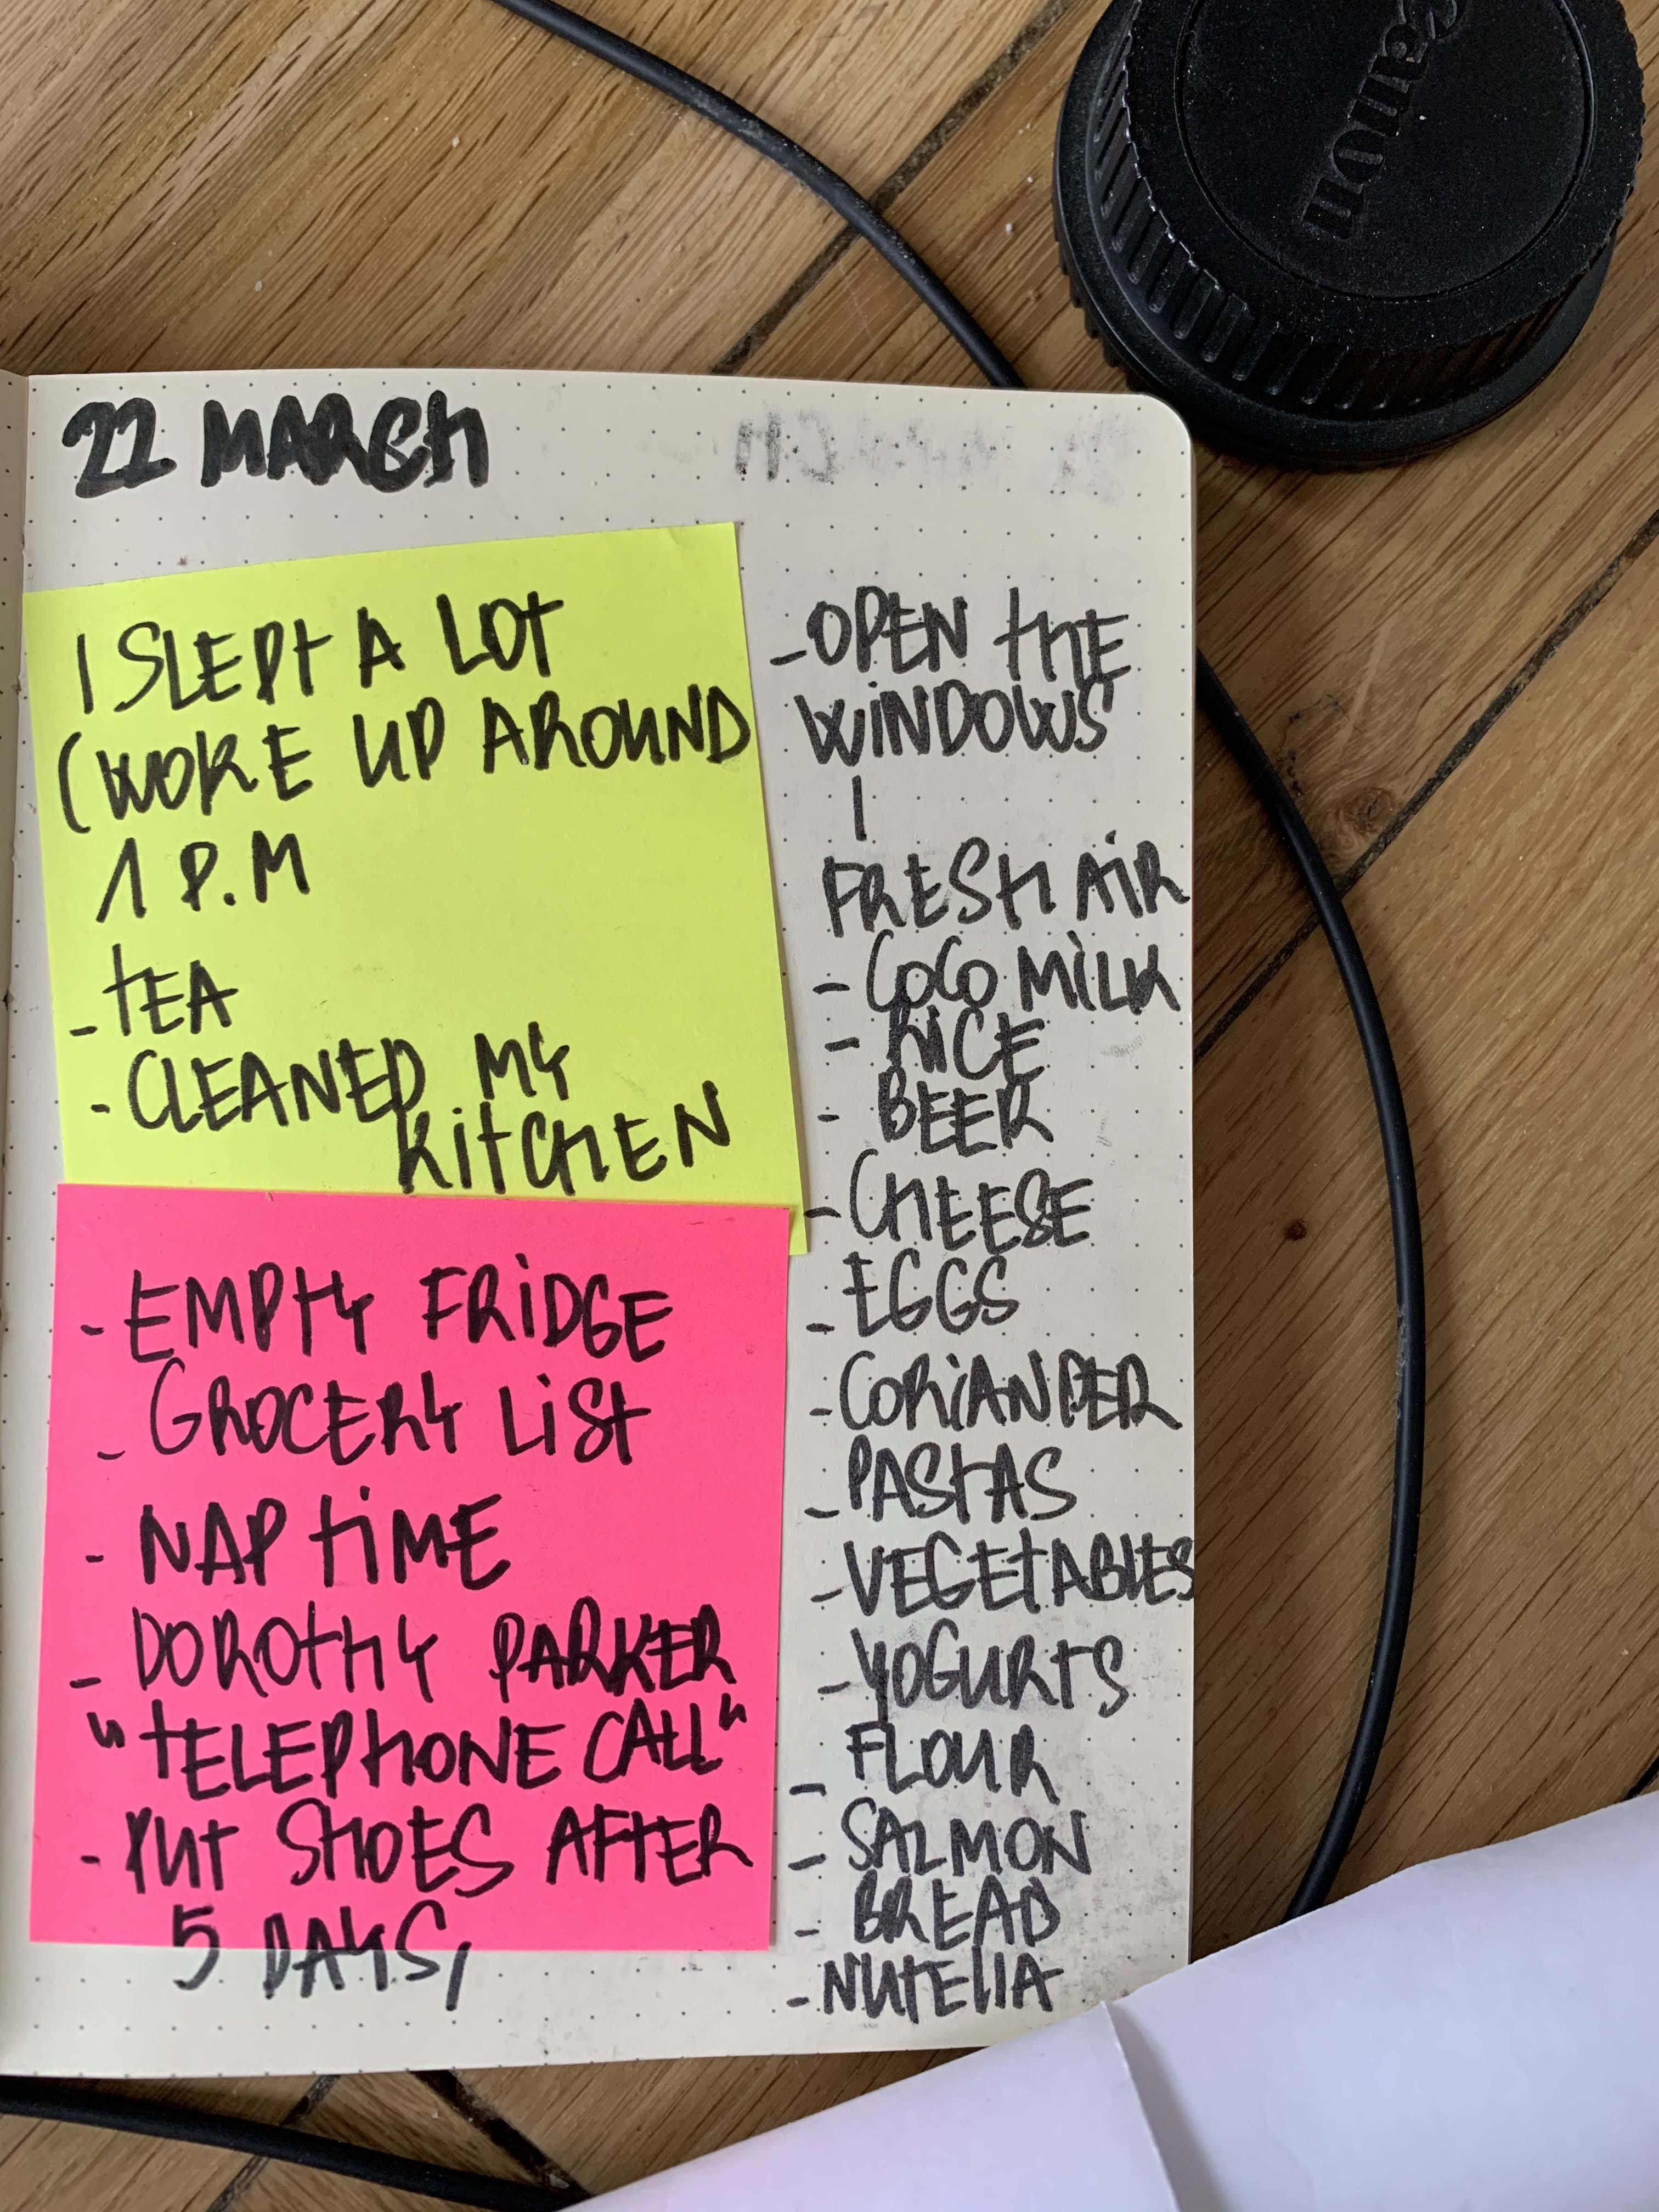 Canon
22 MARCH
I SLEPT A LOT
(WOKE UP AROUND
1 P.M
- TEA
- CLEANED MY
KITCHEN
- EMPTY FRIDGE
- GROCERY LIST
- NAP TIME
- DOROTHY PARKER
"TELEPHONE CALL"
- PUT SHOES AFTER
5 DAYS,
- OPEN THE
WINDOWS
|
FRESH AIR
- COCO MILK
- RICE
- BEER
- CHEESE
- EGGS
- CORIANDER
- PASTAS
- VEGETABLES
- YOGURTS
- FLOUR
- SALMON
- BREAD
- NUTELLA